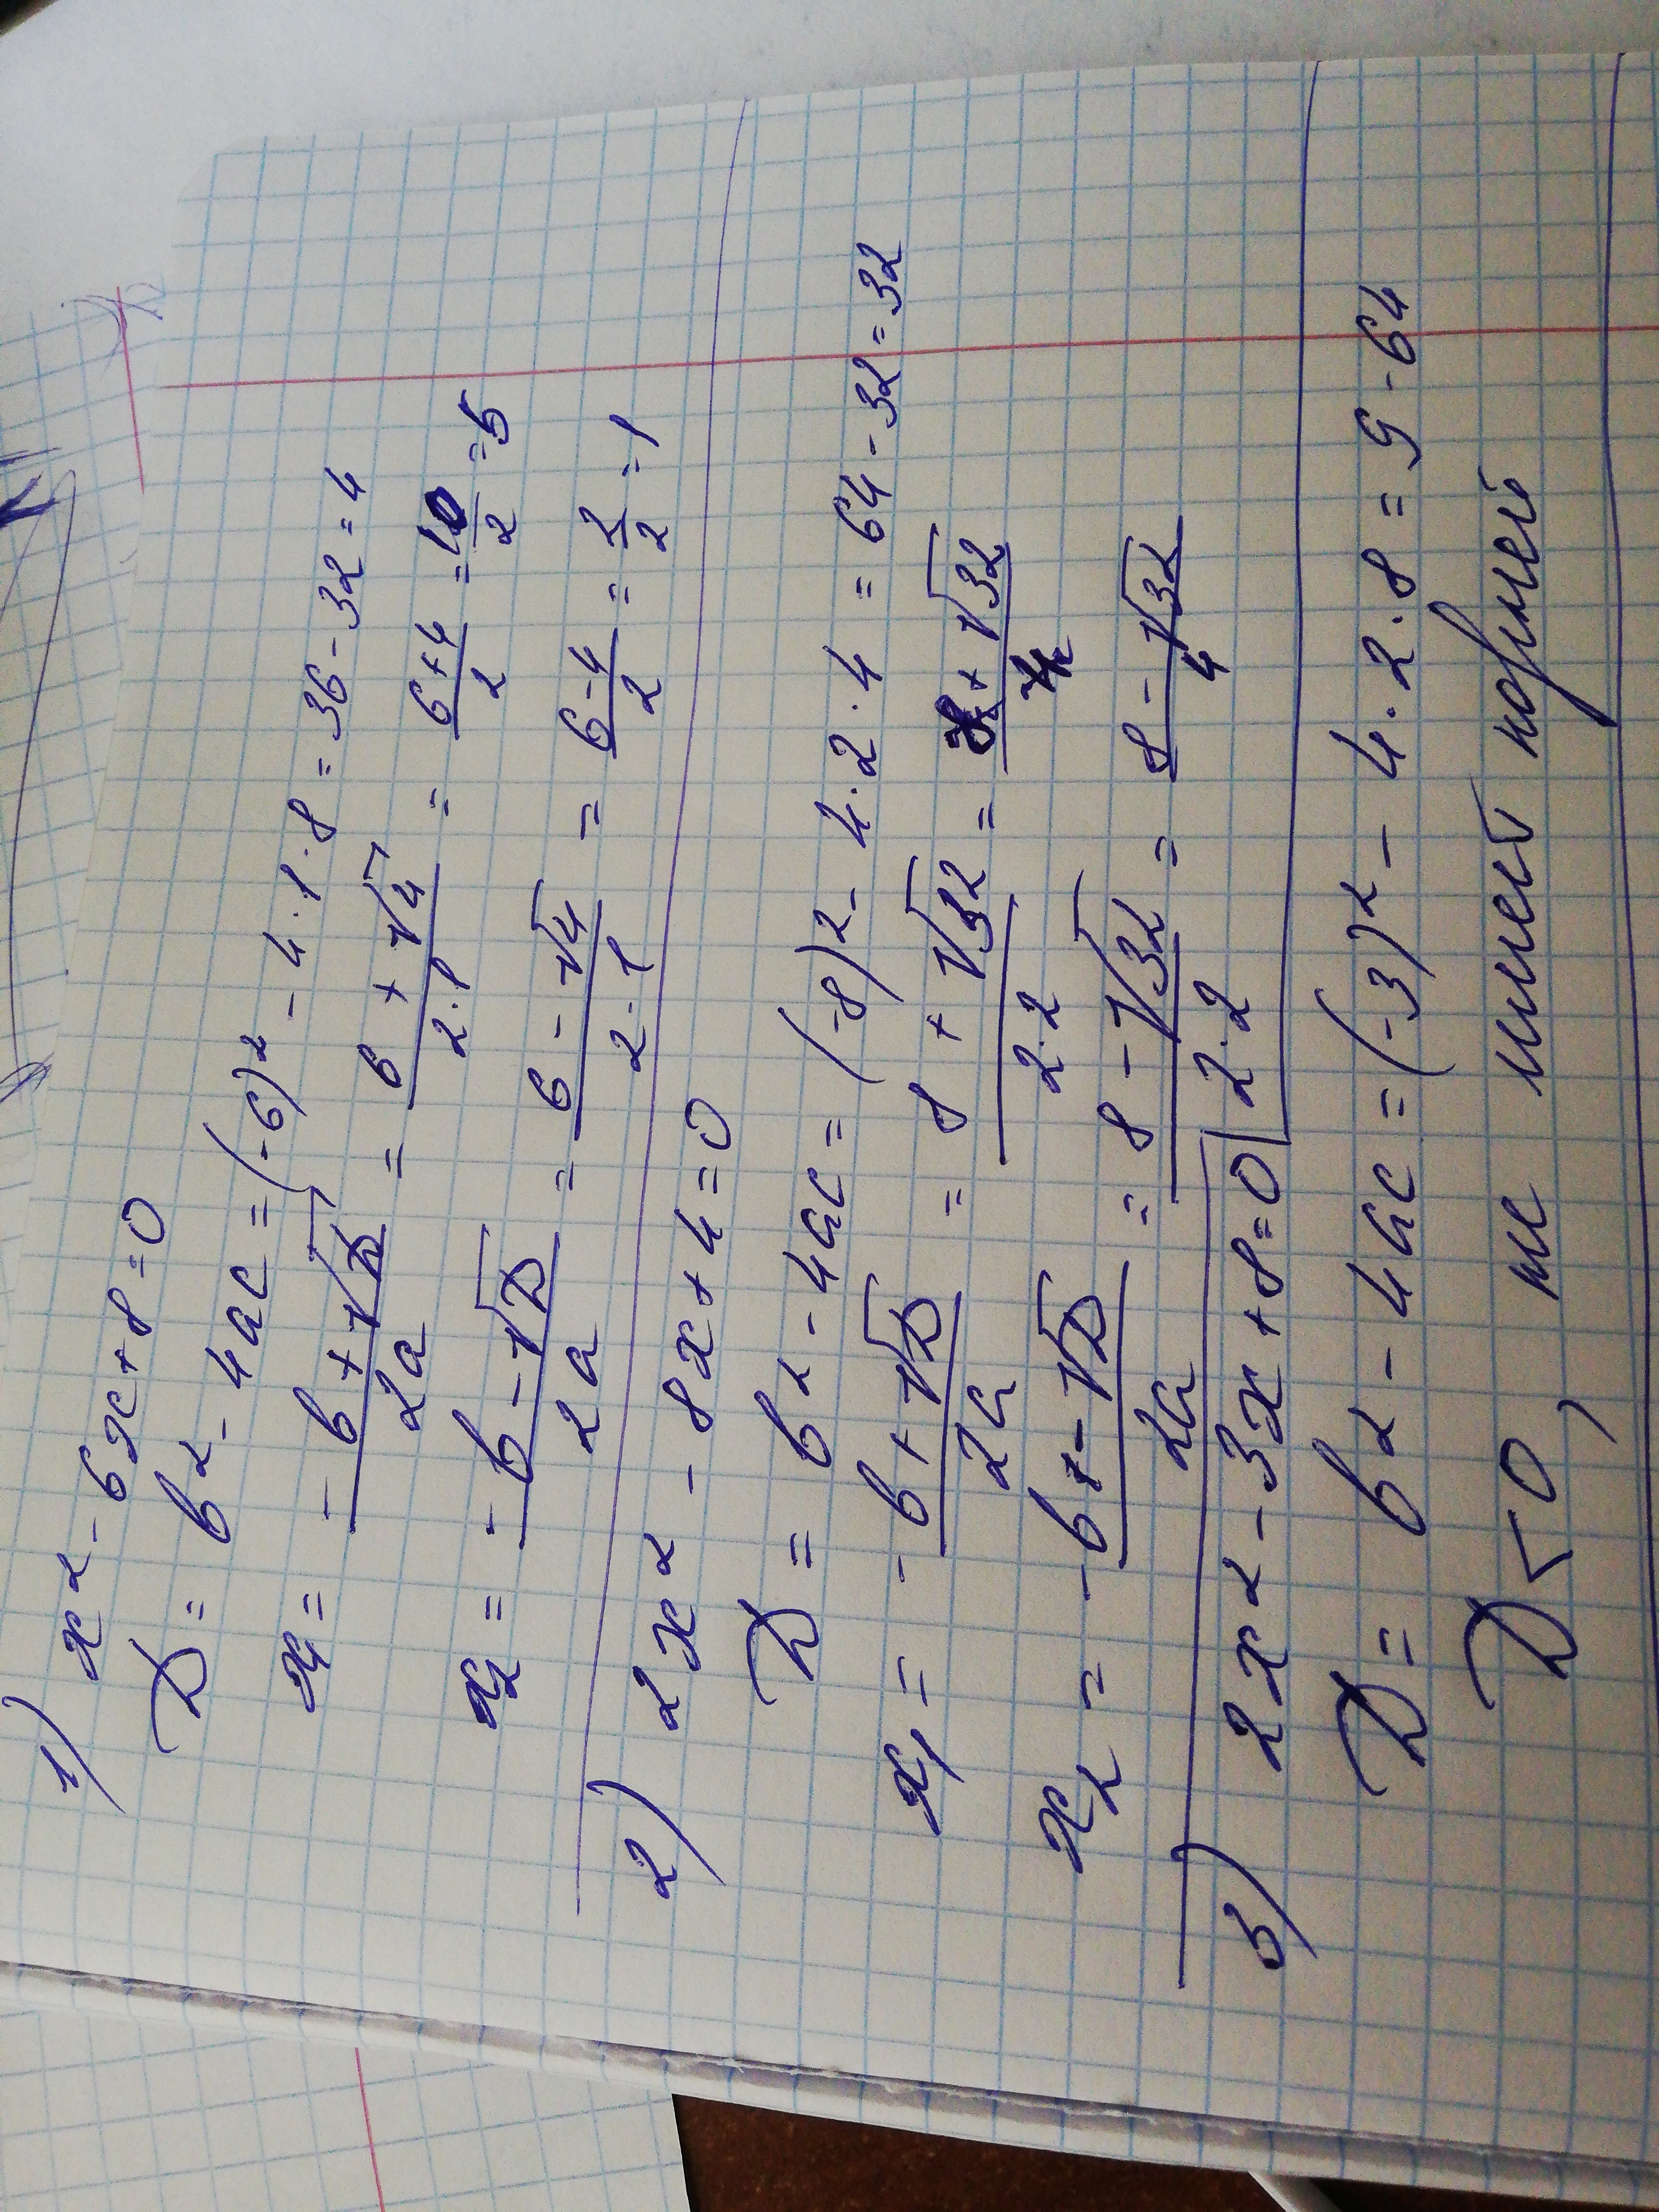 1) x² - 6x + 8 = 0
D = b² - 4ac = (-6)² - 4·1·8 = 36 - 32 = 4
x₁ = (-b + √D)/(2a) = (6 + √4)/(2·1) = (6+4)/2 = 10/2 = 5
x₂ = (-b - √D)/(2a) = (6 - √4)/(2·1) = (6-4)/2 = 2/2 = 1
2) 2x² - 8x + 4 = 0
D = b² - 4ac = (-8)² - 4·2·4 = 64 - 32 = 32
x₁ = (-b + √D)/(2a) = (8 + √32)/(2·2) = (8 + √32)/4
x₂ = (-b - √D)/(2a) = (8 - √32)/(2·2) = (8 - √32)/4
3) 2x² - 3x + 8 = 0
D = b² - 4ac = (-3)² - 4·2·8 = 9 - 64
D < 0, не имеет корней